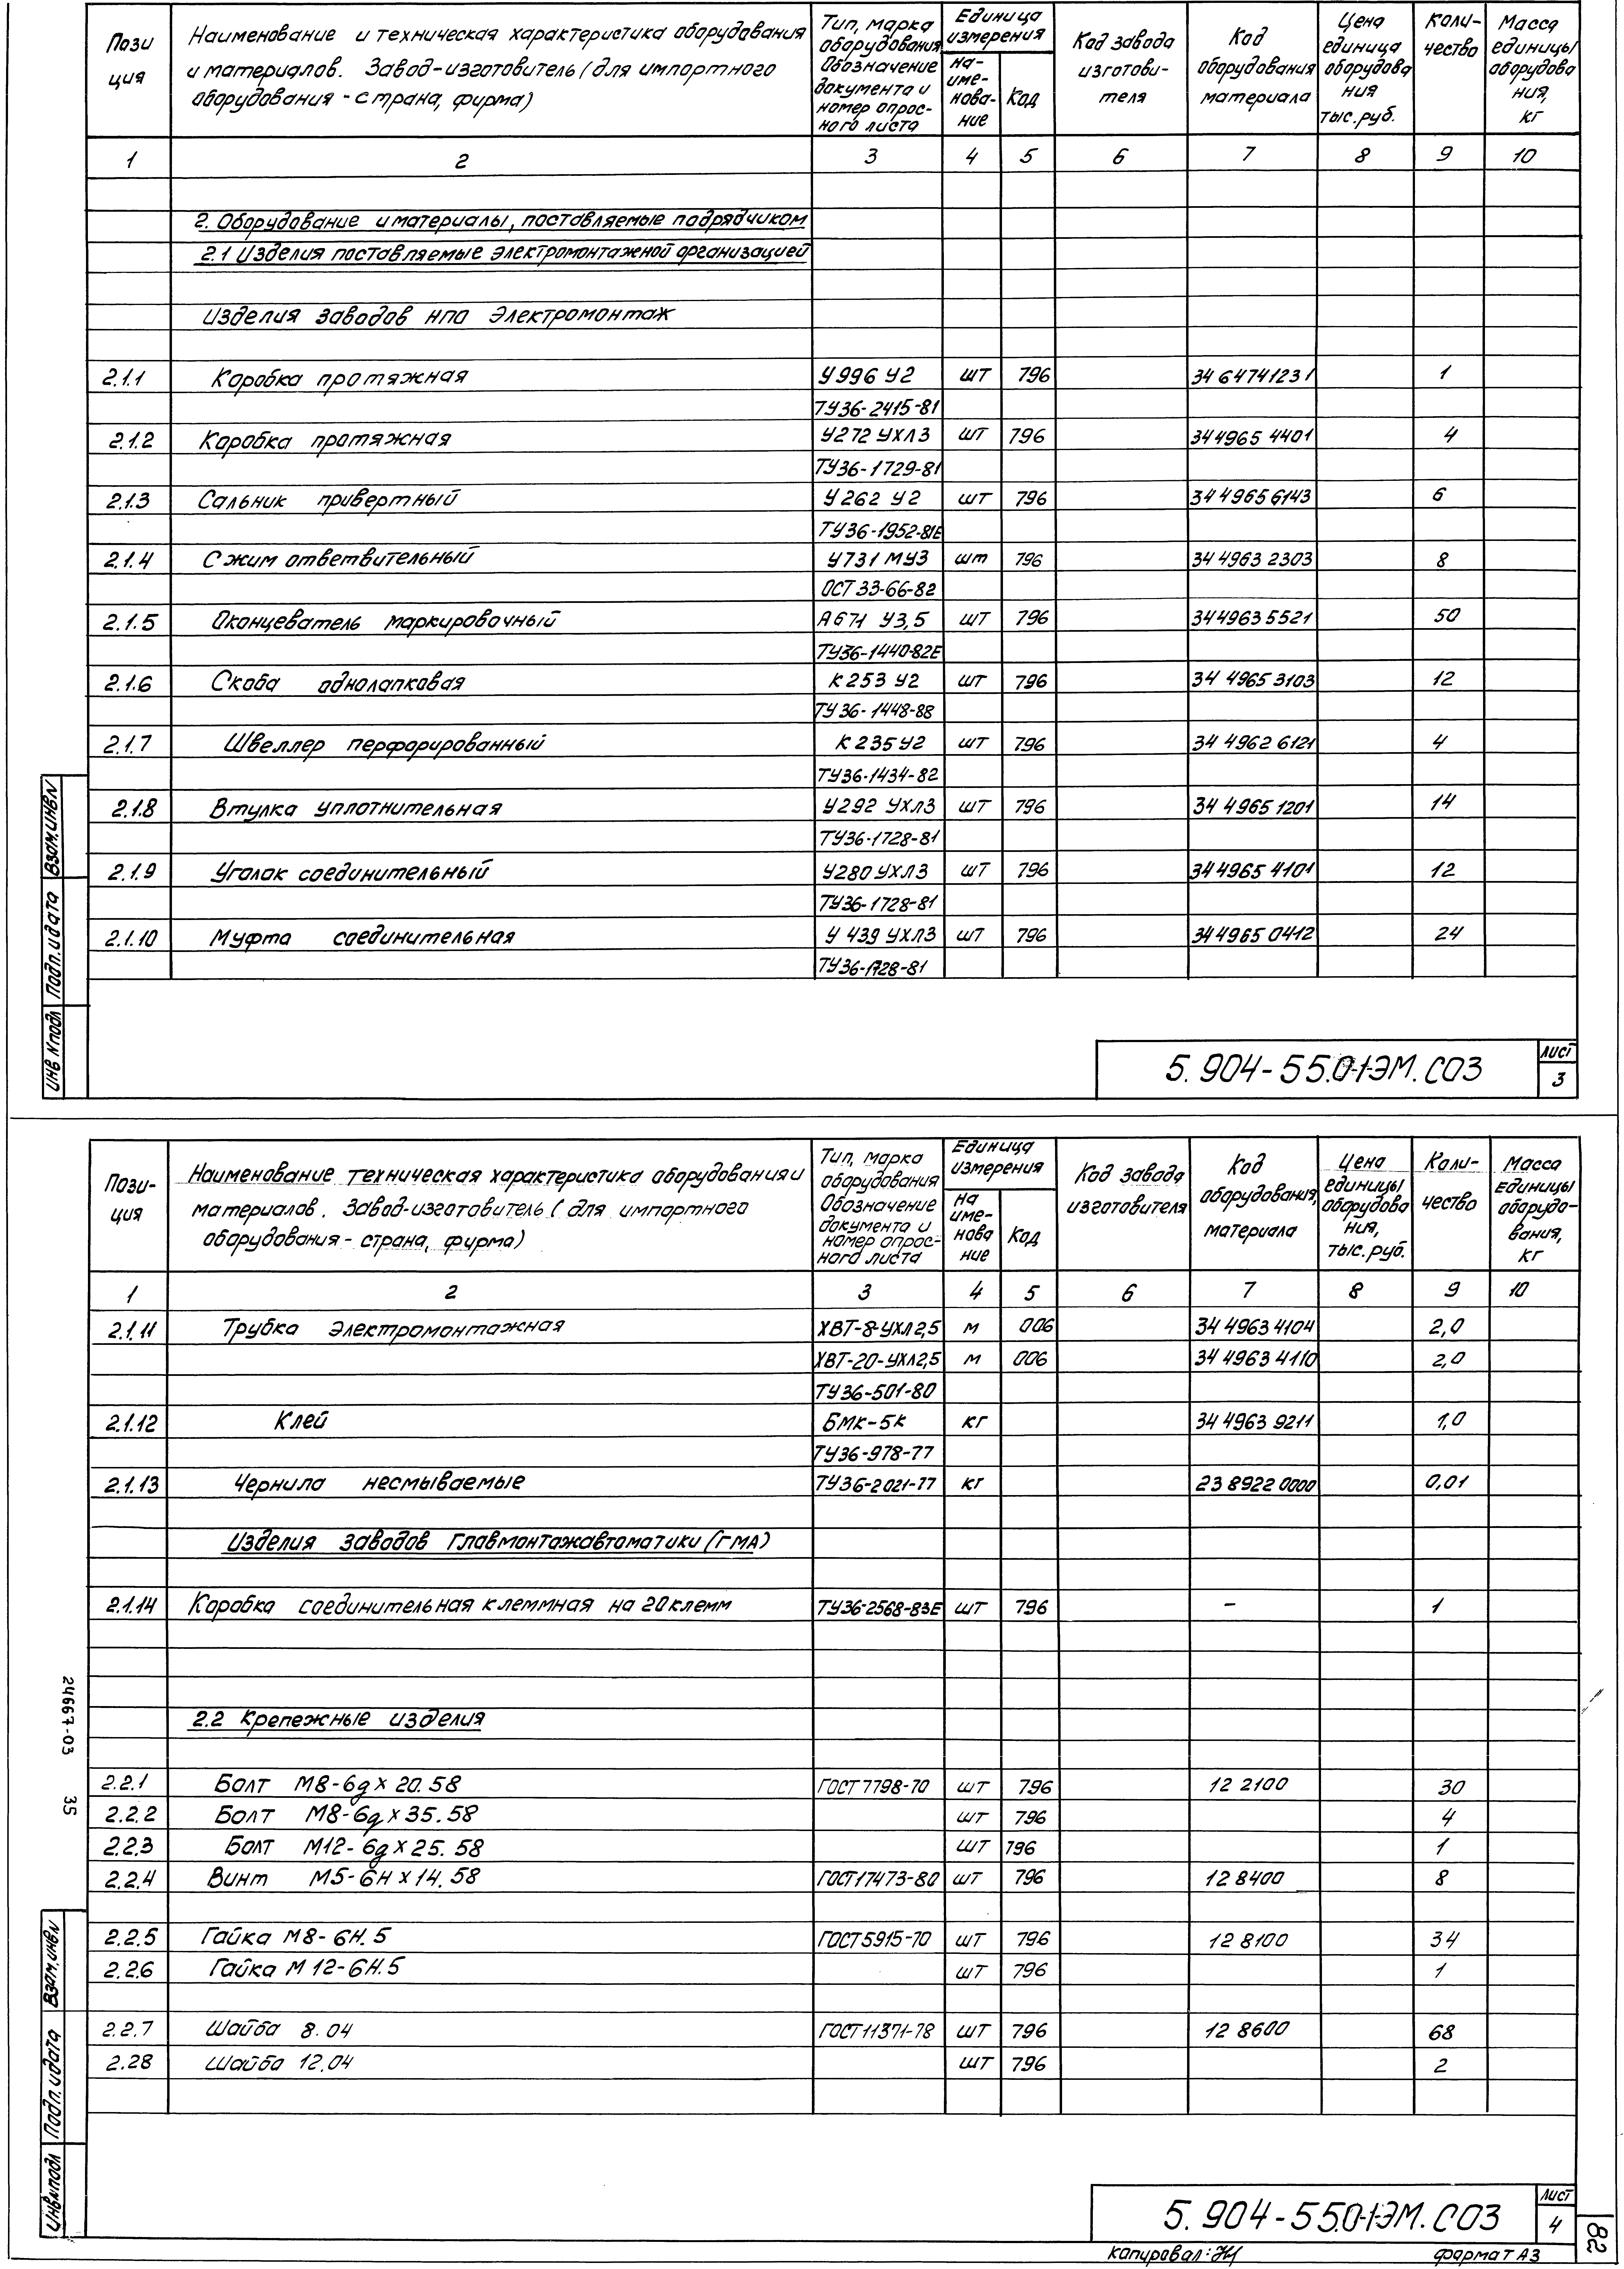 Пози
ция
Наименование и техническая характеристика оборудования
и материалов. Завод-изготовитель (для импортного
оборудования - страна, фирма)
Тип, марка
оборудования
Обозначение
документа и
номер опрос-
ного листа
Единица
измерения
на-
име-
нова-
ние
Код
Код завода
изготови-
теля
Код
оборудования
материала
Цена
единица
оборудова
ния
тыс.руб.
Коли-
чество
Масса
единицы
оборудова
ния,
кг
1 2 3 4 5 6 7 8 9 10
2. Оборудование и материалы, поставляемые подрядчиком
2.1 Изделия поставляемые электромонтажной организацией
Изделия заводов НПО Электромонтаж
2.1.1 Коробка протяжная У996 У2 шт 796 34 64741231 1
ТУ36-2415-81
2.1.2 Коробка протяжная У272 УХЛ3 шт 796 34 4965 4401 4
ТУ36-1729-81
2.1.3 Сальник привертный У262 У2 шт 796 34 4965 6143 6
ТУ36-1952-81Е
2.1.4 Сжим ответвительный У731 МУ3 шт 796 34 4963 2303 8
ОСТ 33-66-82
2.1.5 Оконцеватель маркировочный А671 У3,5 шт 796 34 4963 5521 50
ТУ36-1440-82Е
2.1.6 Скоба однолапковая К253 У2 шт 796 34 4965 3103 12
ТУ36-1448-88
2.1.7 Швеллер перфорированный К235 У2 шт 796 34 4962 6121 4
ТУ36-1434-82
2.1.8 Втулка уплотнительная У292 УХЛ3 шт 796 34 4965 1201 14
ТУ36-1728-81
2.1.9 Уголок соединительный У280 УХЛ3 шт 796 34 4965 4101 12
ТУ36-1728-81
2.1.10 Муфта соединительная У 439 УХЛ3 шт 796 34 4965 0412 24
ТУ36-1728-81
Инв N подл Подп. и дата Взам. инв N
5.904-55.0-1-ЭМ.СО3
Лист
3
Пози-
ция
Наименование техническая характеристика оборудования и
материалов. Завод-изготовитель (для импортного
оборудования - страна, фирма)
Тип, марка
оборудования
Обозначение
документа и
номер опрос-
ного листа
Единица
измерения
на
име-
нова
ние
Код
Код завода
изготовителя
Код
оборудования,
материала
Цена
единицы
оборудова
ния,
тыс.руб.
Коли-
чество
Масса
единицы
оборудо-
вания,
кг
1 2 3 4 5 6 7 8 9 10
2.1.11 Трубка электромонтажная ХВТ-8-УХЛ2,5 м 006 34 4963 4104 2,0
ХВТ-20-УХЛ2,5 м 006 34 4963 4110 2,0
ТУ36-501-80
2.1.12 Клей БМК-5к кг 34 4963 9211 1,0
ТУ36-978-77
2.1.13 Чернила несмываемые ТУ36-2021-77 кг 23 8922 0000 0,01
Изделия заводов Главмонтажавтоматики (ГМА)
2.1.14 Коробка соединительная клеммная на 20 клемм ТУ36-2568-83Е шт 796 - 1
2.2 Крепежные изделия
2.2.1 Болт М8-6g×20.58 ГОСТ 7798-70 шт 796 12 2100 30
2.2.2 Болт М8-6g×35.58 шт 796 4
2.2.3 Болт М12-6g×25.58 шт 796 1
2.2.4 Винт М5-6Н×14.58 ГОСТ17473-80 шт 796 12 8400 8
2.2.5 Гайка М8-6Н.5 ГОСТ 5915-70 шт 796 12 8100 34
2.2.6 Гайка М12-6Н.5 шт 796 1
2.2.7 Шайба 8.04 ГОСТ11371-78 шт 796 12 8600 68
2.28 Шайба 12.04 шт 796 2
24667-03 35
Инв N подл Подп. и дата Взам. инв N
5.904-55.0-1-ЭМ.СО3
Лист
4
82
Копировал:
формат А3